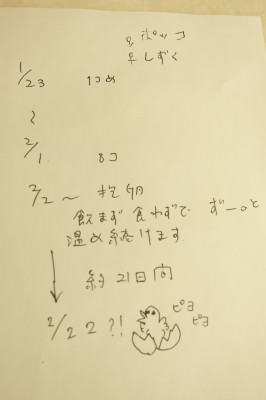 ♀ ポッコ
♀ しずく
1/23 1コめ
〜
2/1 8コ
2/2 〜 抱卵
飲まず 食わずで ずーっと
温め続けます
約 21日間
2/22?!
ピヨ
ピヨ